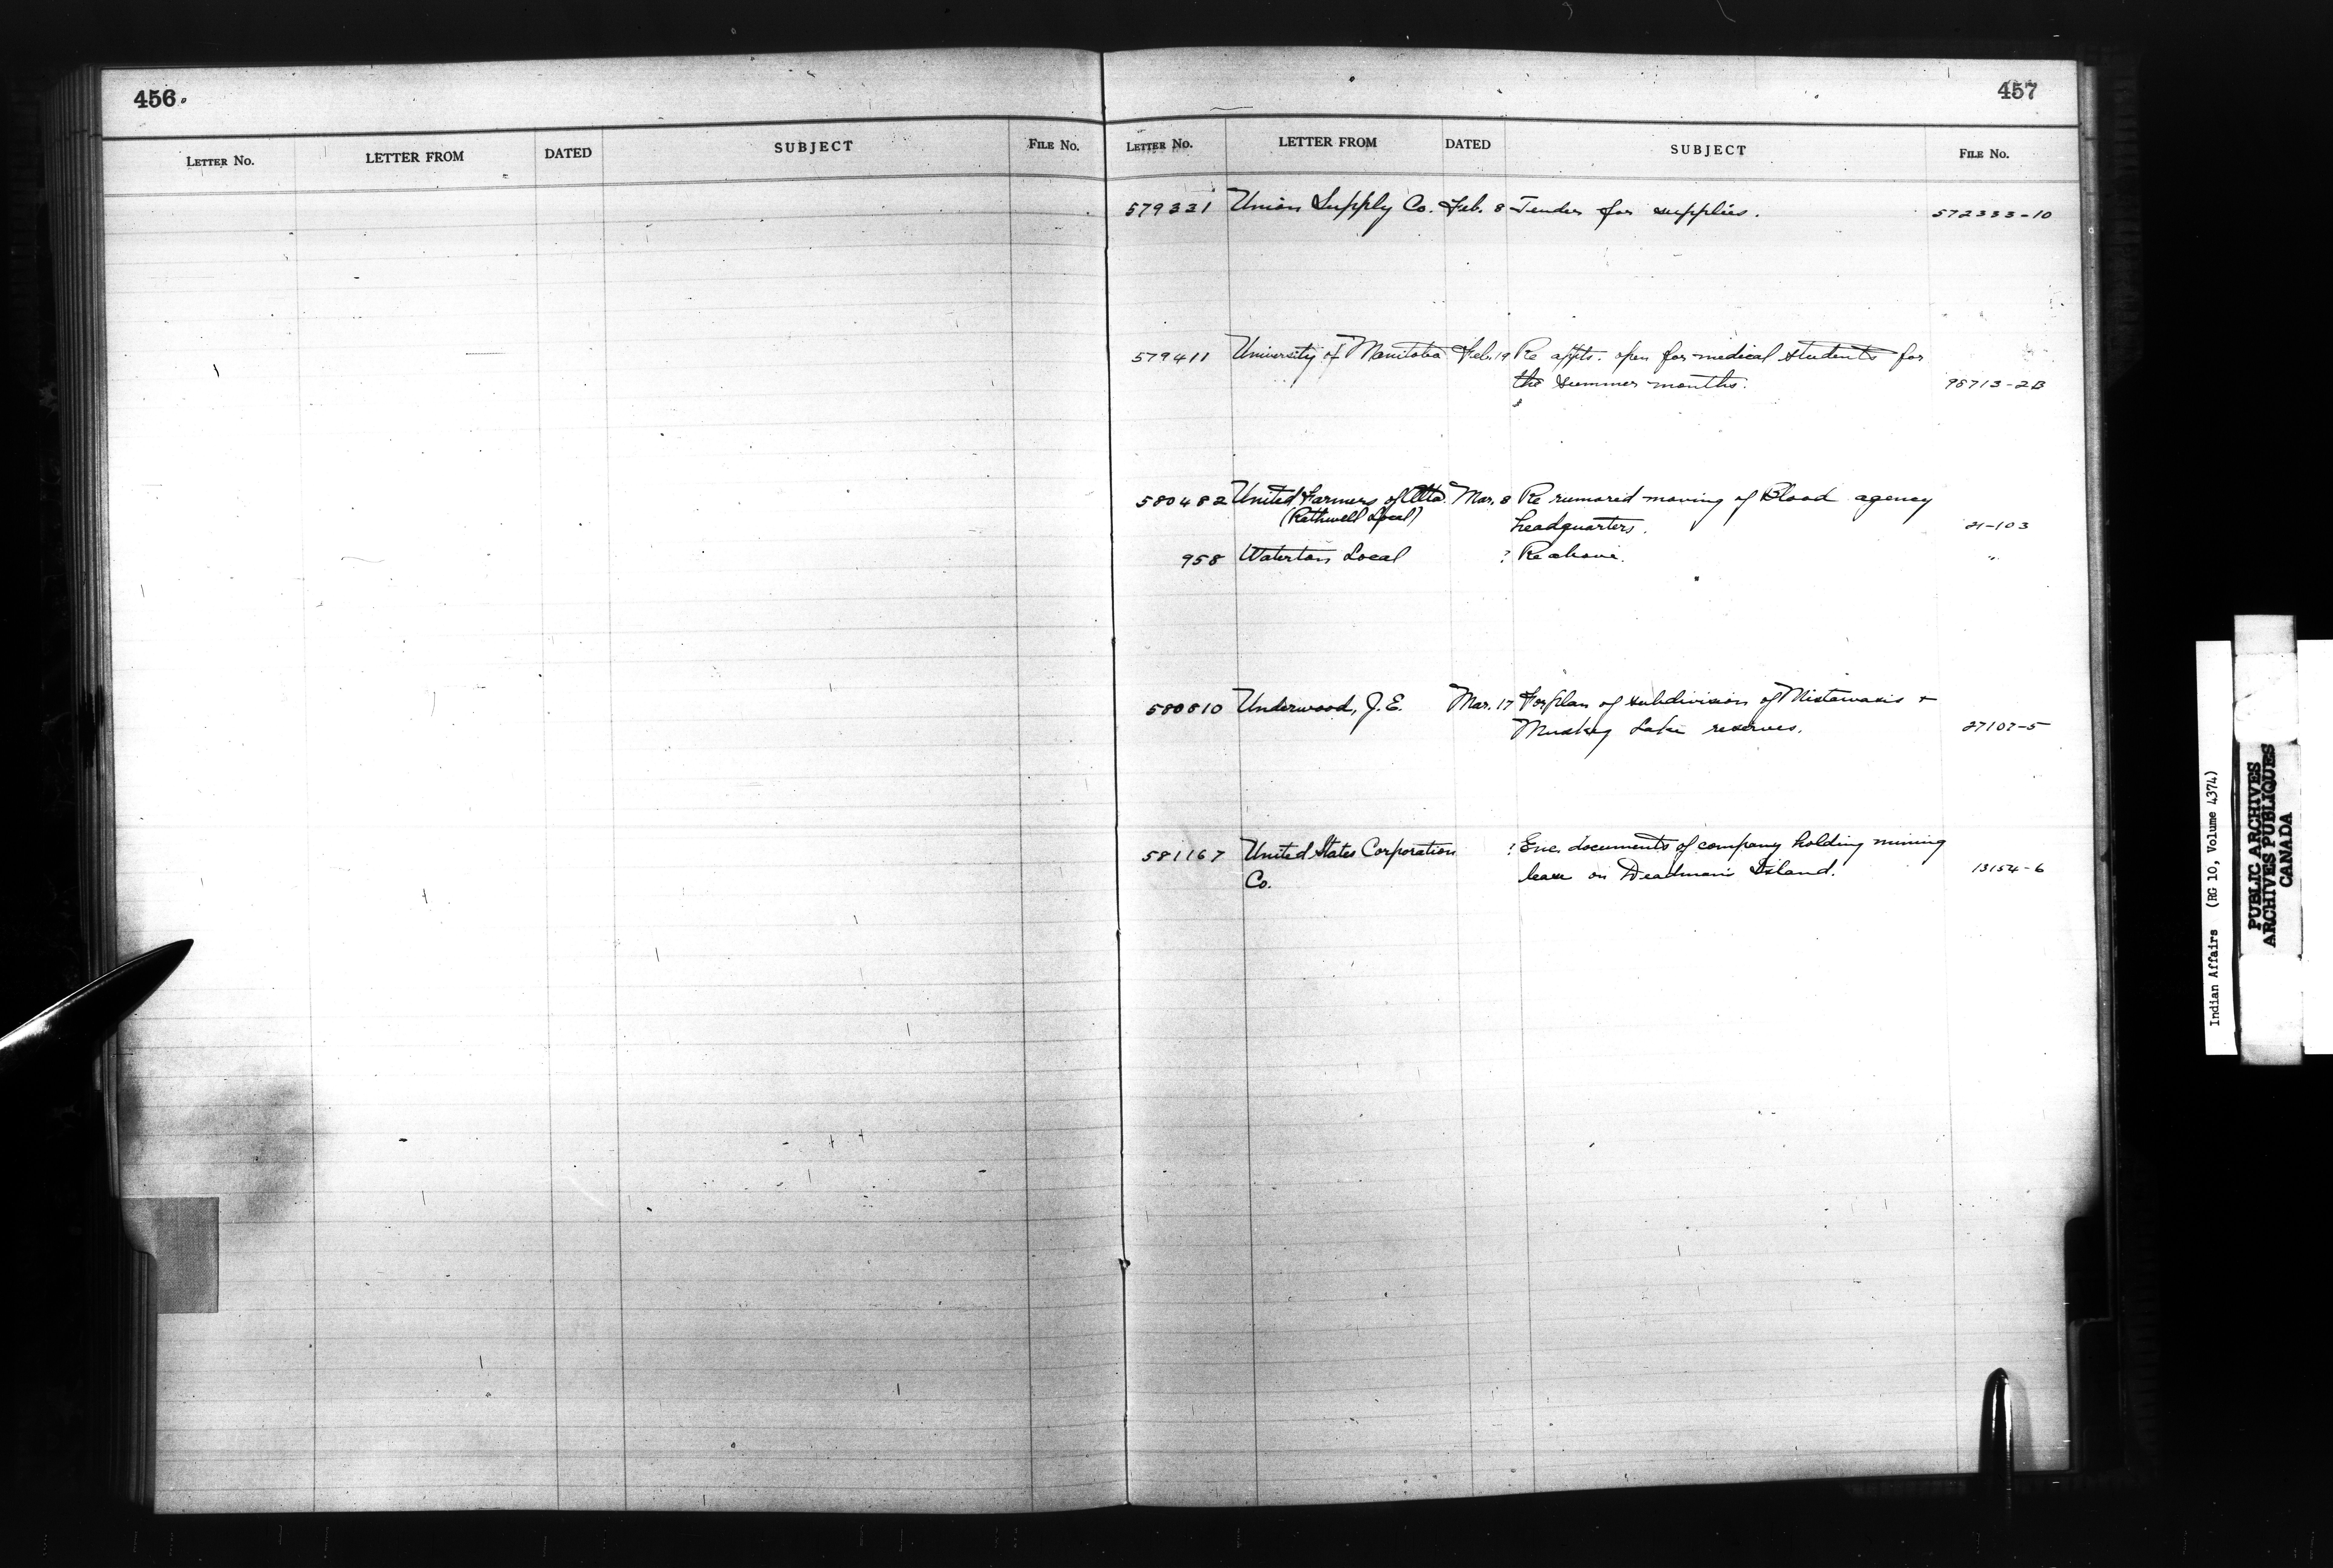 456
LETTER No. LETTER FROM DATED SUBJECT FILE No.
457
LETTER No. LETTER FROM DATED SUBJECT FILE No.
579321 Union Supply Co. Feb. 8 Tender for supplies. 572333-10
579411 University of Manitoba Feb. 19 Re appts. open for medical students for
the summer months. 98713-2B
580482 United Farmers of Alta. Mar. 8 Re rumored moving of Blood agency
(Rethwell Local) headquarters. 21-103
958 Waterton Local ? Re above. "
580810 Underwood, J. E. Mar. 17 For plan of subdivision of Mistawasis +
Muskeg Lake reserves. 27107-5
581167 United States Corporation ? Enc. documents of company holding mining
Co. lease on Deadman's Island. 13154-6
Indian Affairs (RG 10, Volume 4374)
PUBLIC ARCHIVES
ARCHIVES PUBLIQUES
CANADA